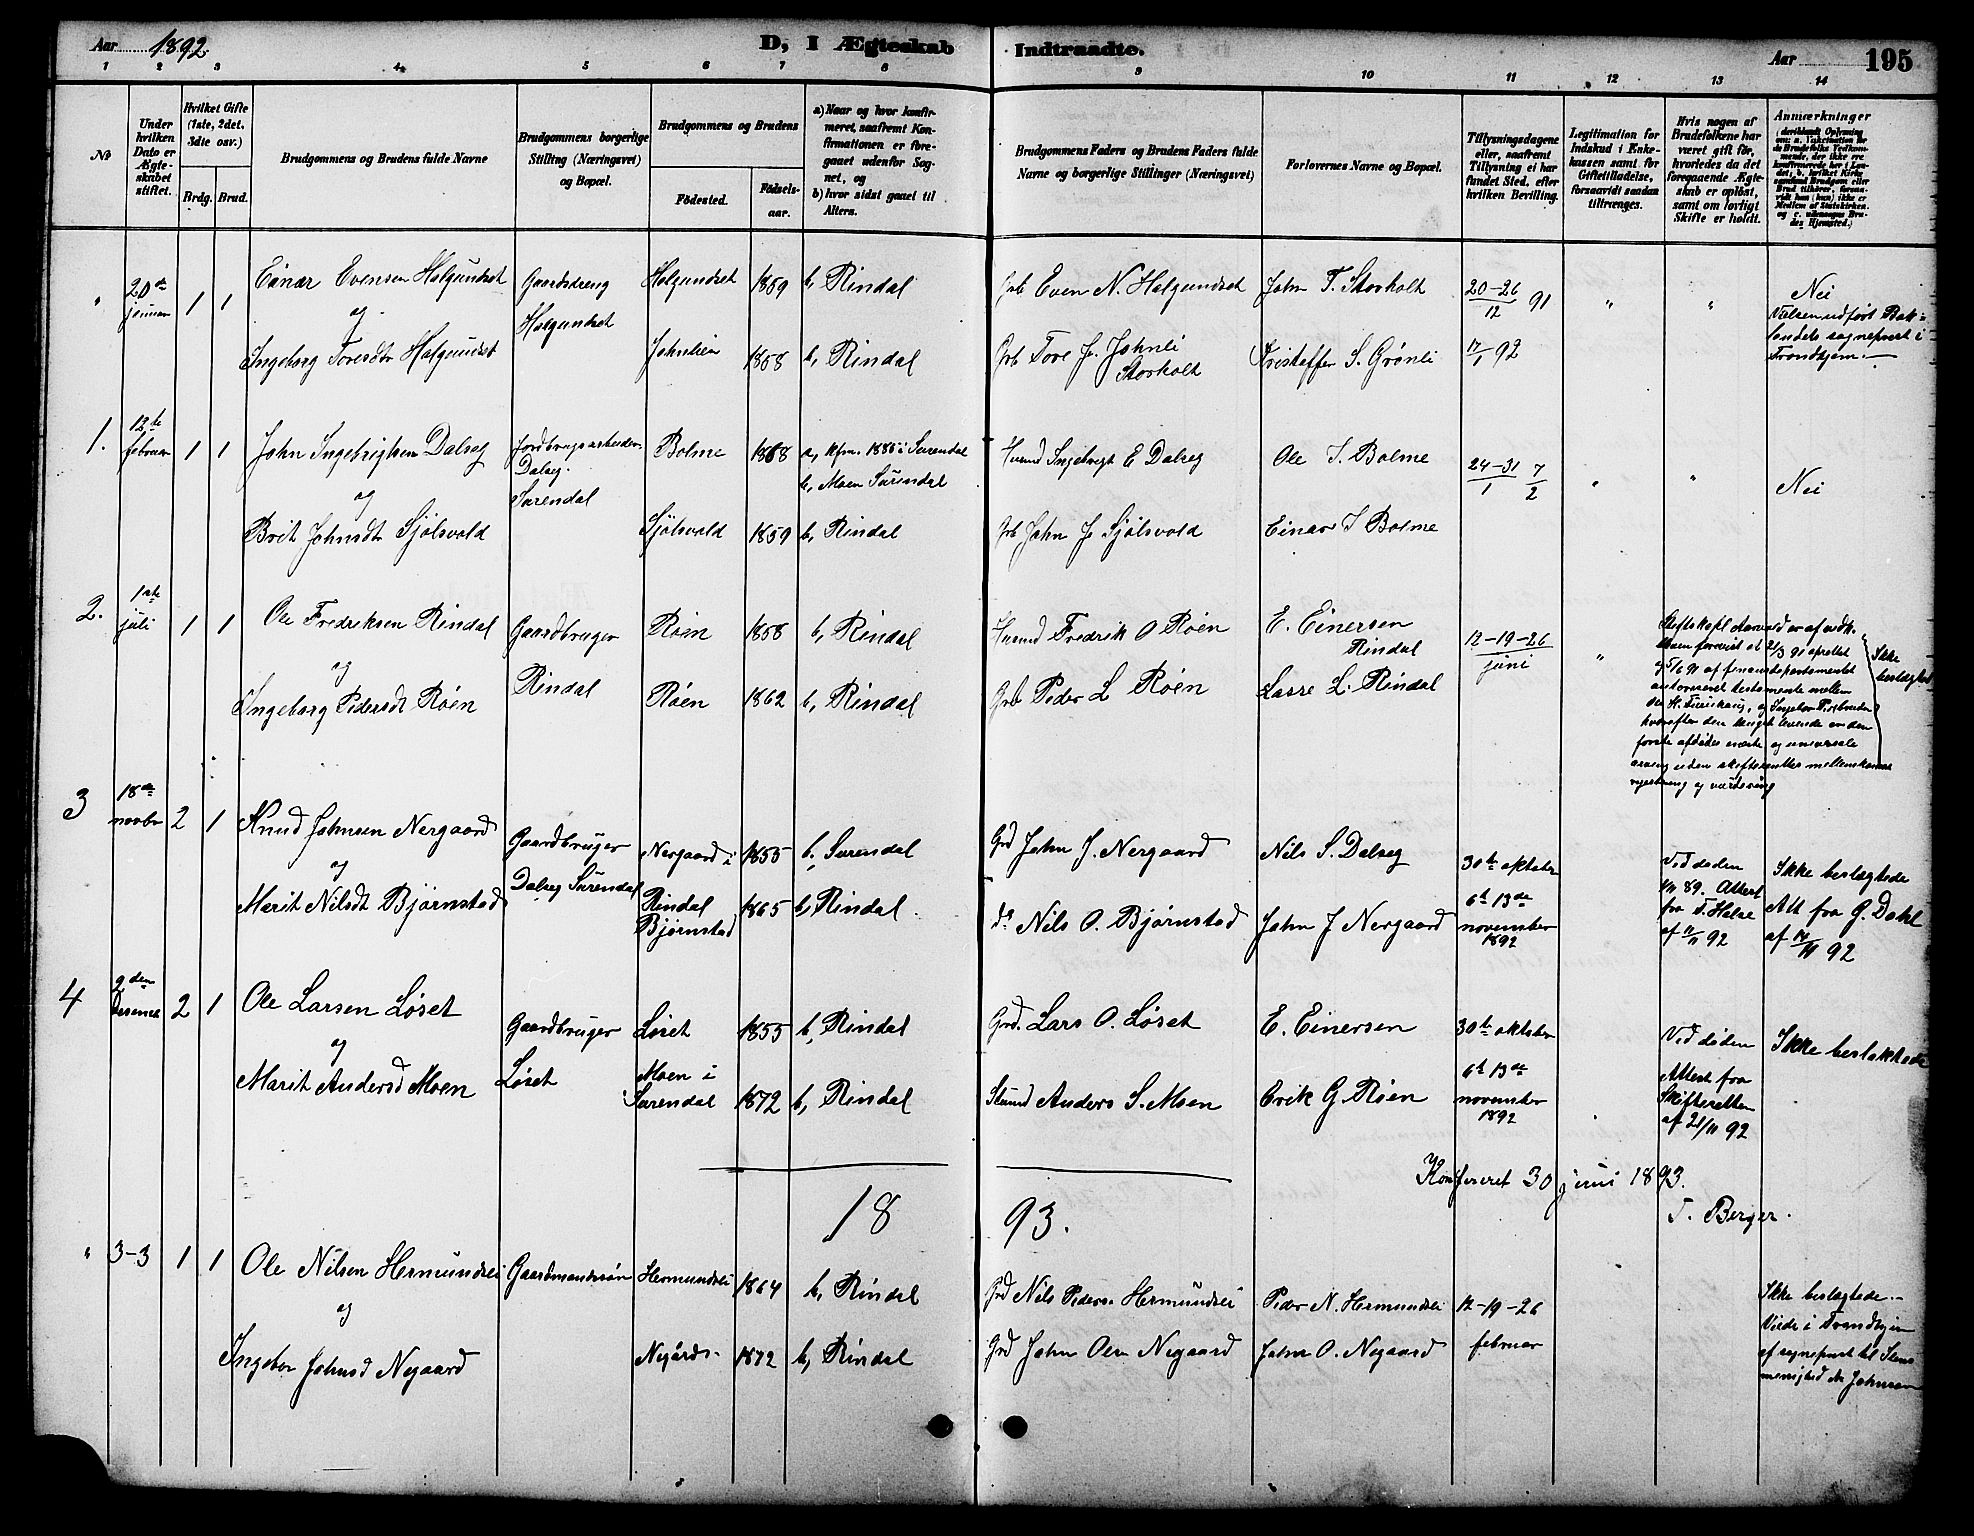 Aar 1892.
D, I Ægteskab Indtraadte.
Aar 195
1 2 3 4 5 6 7 8 9 10 11 12 13 14
No
Under hvilken Dato er Ægteskabet stiftet.
Hvilket Gifte (1ste, 2det, 3die osv.)
Brdg. Brud.
Brudgommens og Brudens fulde Navne
Brudgommens borgerlige Stilling (Næringsvei) og Bopæl.
Brudgommens og Brudens
Födested.
Födselsaar.
a) Naar og hvor konfirmeret, saafremt Konfirmationen er foregaaet udenfor Sognet, og
b) hvor sidst gaaet til Alters.
Brudgommens Faders og Brudens Faders fulde Navne og borgerlige Stillinger (Næringsvei)
Forlovernes Navne og Bopæl.
Tillysningsdagene eller, saafremt Tillysning ei har fundet Sted, efter hvilken Bevilling.
Legitimation for Indskud i Enkekassen samt for Giftetilladelse, forsaavidt saadan tiltrænges.
Hvis nogen af Brudefolkene har været gift før, hvorledes da det foregaaende Ægteskab er opløst, samt om lovligt Skifte er holdt.
Anmærkninger
" 20de januar 1 1 Einar Evensen Halgundset Gaardsdreng Halgundset Halgundset 1859 b, Rindal Grb Even N. Halgundset John T. Storholt 20-26/12 91 " " Nei
og
Vielsen udført Baklandets sogneprest i Trondhjem.
Ingeborg Toresdtr Halgundset Johnlien 1858 b, Rindal Grb Tore J. Johnli Storholt Kristoffer S. Grønli 17/1 92
1. 12te februar 1 1 John Ingebrigtsen Dalseg Jordbrugsarbeider Dalseg. Surendal Bolme 1868 a, Kfm. 1885 i Surendal b, Moen Surendal Husmd Ingebrigt E Dalseg Ole I. Bolme 24-31/1 7/2 " " Nei
og
Brit Johnsdtr Sjølsvold Sjølsvold 1859 b, Rindal Grb John J. Sjølsvold Einar I Bolme
2. 1ste juli 1 1 Ole Fredriksen Rindal Gaardbruger Rindal Røen 1858 b, Rindal Husmd Fredrik O Røen E. Einersen Rindal 12-19-26 juni "
og
Ikke beslægted
Ingeborg Pedersdt Røen Røen 1862 b, Rindal Grb Peder L Røen Lasse L. Rindal
3 18de novbr 2 1 Knud Johnsen Nergaard Gaardbruger Dalseg Surendal Nergaard i Rindal 1855 b. Surendal Grd John J. Nergaard Nils S. Dalseg 30te oktober 6te 13de november 1892 Ved døden 1/11 89. Attest fra T. Halse af 11/11 92 Ikke beslægtede Att fra G. Dahl af 14/11 92
og
Marit Nilsdt Bjørnstad Bjørnstad 1865 b, Rindal. do Nils O. Bjørnstad John J Nergaard
4 2den Desember 2 1 Ole Larsen Løset Gaardbruger Løset Løset 1855 b, Rindal Grd. Lars O. Løset E. Einersen 30te oktober 6te 13de november 1892 Ved døden Attest fra Skifteretten af 21/11 92 Ikke beslektede
og
Marit Andersd Moen Moen i Surendal 1872 b, Rindal Anders S. Moen Erik G. Røen
Konfereret 30 juni 1893.
T. Berger.
1893.
" 3-3 1 1 Ole Nilsen Hermundsli Gaardmandssøn Hermundsli 1864 b, Rindal Grd Nils Peders. Hermundsli Peder N. Hermundsli 12-19-26 februar Ikke beslegtede. Viede i Trondhjem af sogneprest til menighed Johnson
og
Ingebor Johnsd Negaard Negårds 1872 b, Rindal Grd John Olsn Negaard John O. Negaard